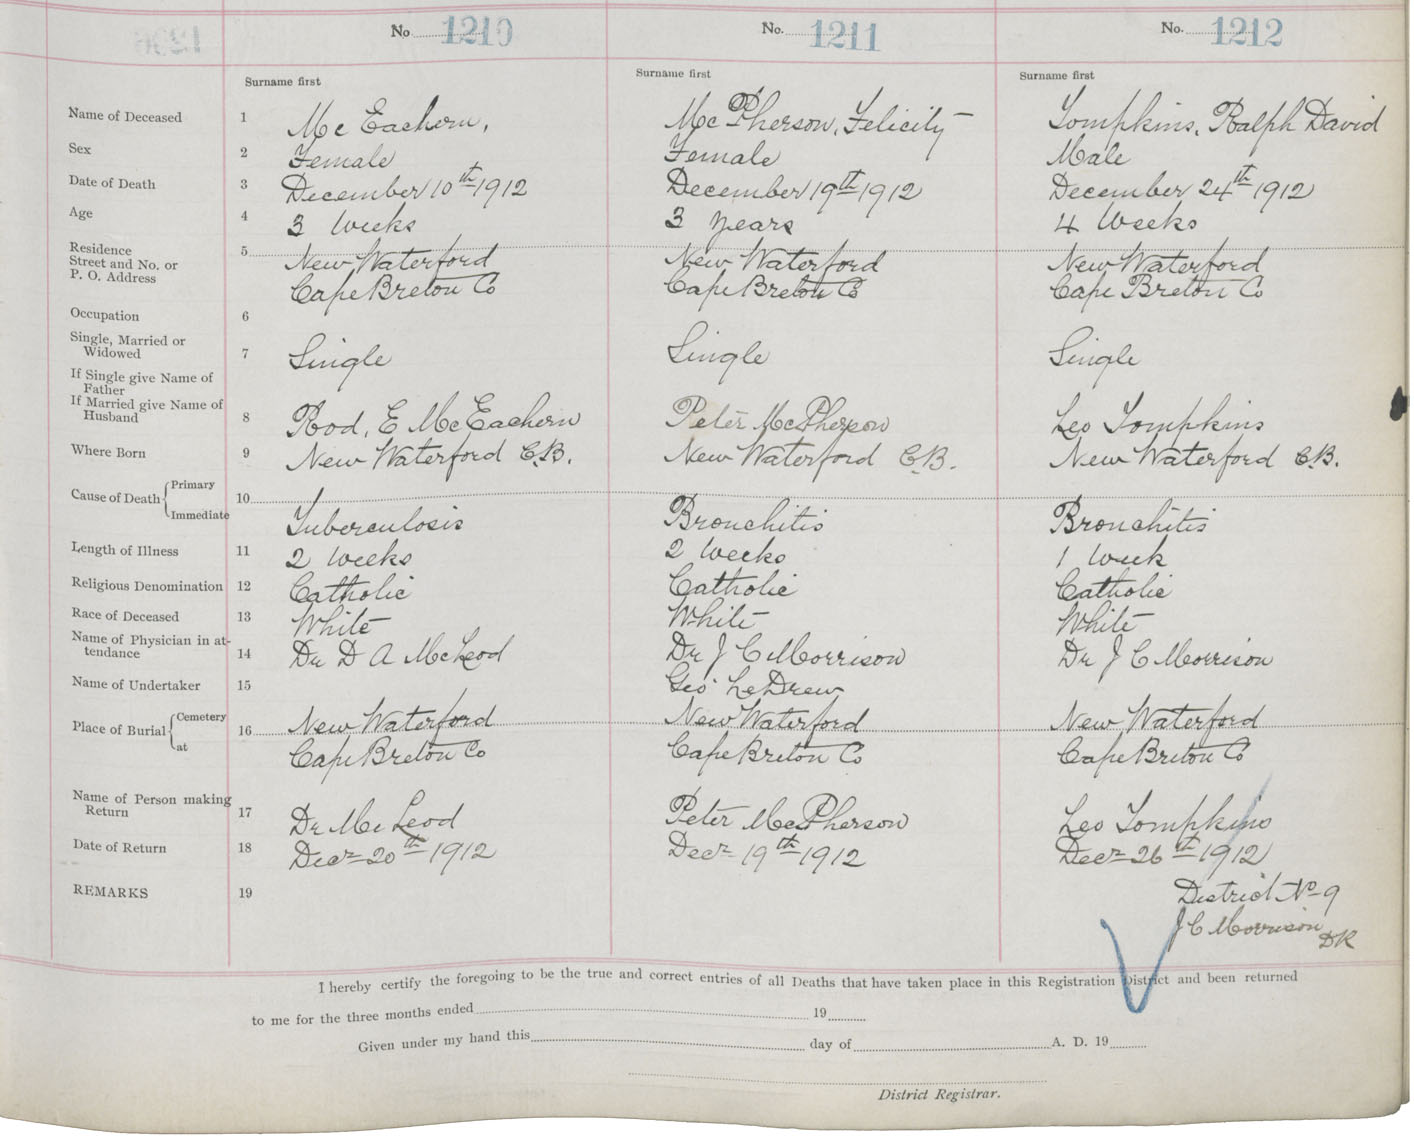 No. 1210 No. 1211 No. 1212
Surname first Surname first Surname first
Name of Deceased 1 Mc Eachern, McPherson, Felicity Tompkins, Ralph David
Sex 2 Female Female Male
Date of Death 3 December 10th 1912 December 19th 1912 December 24th 1912
Age 4 3 Weeks 3 years 4 Weeks
Residence 5
Street and No. or New Waterford New Waterford New Waterford
P. O. Address Cape Breton Co Cape Breton Co Cape Breton Co
Occupation 6
Single, Married or
Widowed 7 Single Single Single
If Single give Name of
Father
If Married give Name of
Husband 8 Rod. E McEachern Peter McPherson Leo Tompkins
Where Born 9 New Waterford C.B. New Waterford C.B. New Waterford C.B.
Cause of Death Primary 10
Immediate Tuberculosis Bronchitis Bronchitis
Length of Illness 11 2 Weeks 2 Weeks 1 Week
Religious Denomination 12 Catholic Catholic Catholic
Race of Deceased 13 White White White
Name of Physician in at-
tendance 14 Dr D A McLeod Dr J C Morrison Dr J C Morrison
Name of Undertaker 15 Geo LeDrew
Place of Burial Cemetery 16 New Waterford New Waterford New Waterford
at Cape Breton Co Cape Breton Co Cape Breton Co
Name of Person making
Return 17 Dr Mc Leod Peter McPherson Leo Tompkins
Date of Return 18 Decr 20th 1912 Decr 19th 1912 Decr 26th 1912
REMARKS 19 District No 9
J C Morrison DR
I hereby certify the foregoing to be the true and correct entries of all Deaths that have taken place in this Registration District and been returned
to me for the three months ended 19
Given under my hand this day of A. D. 19
District Registrar.